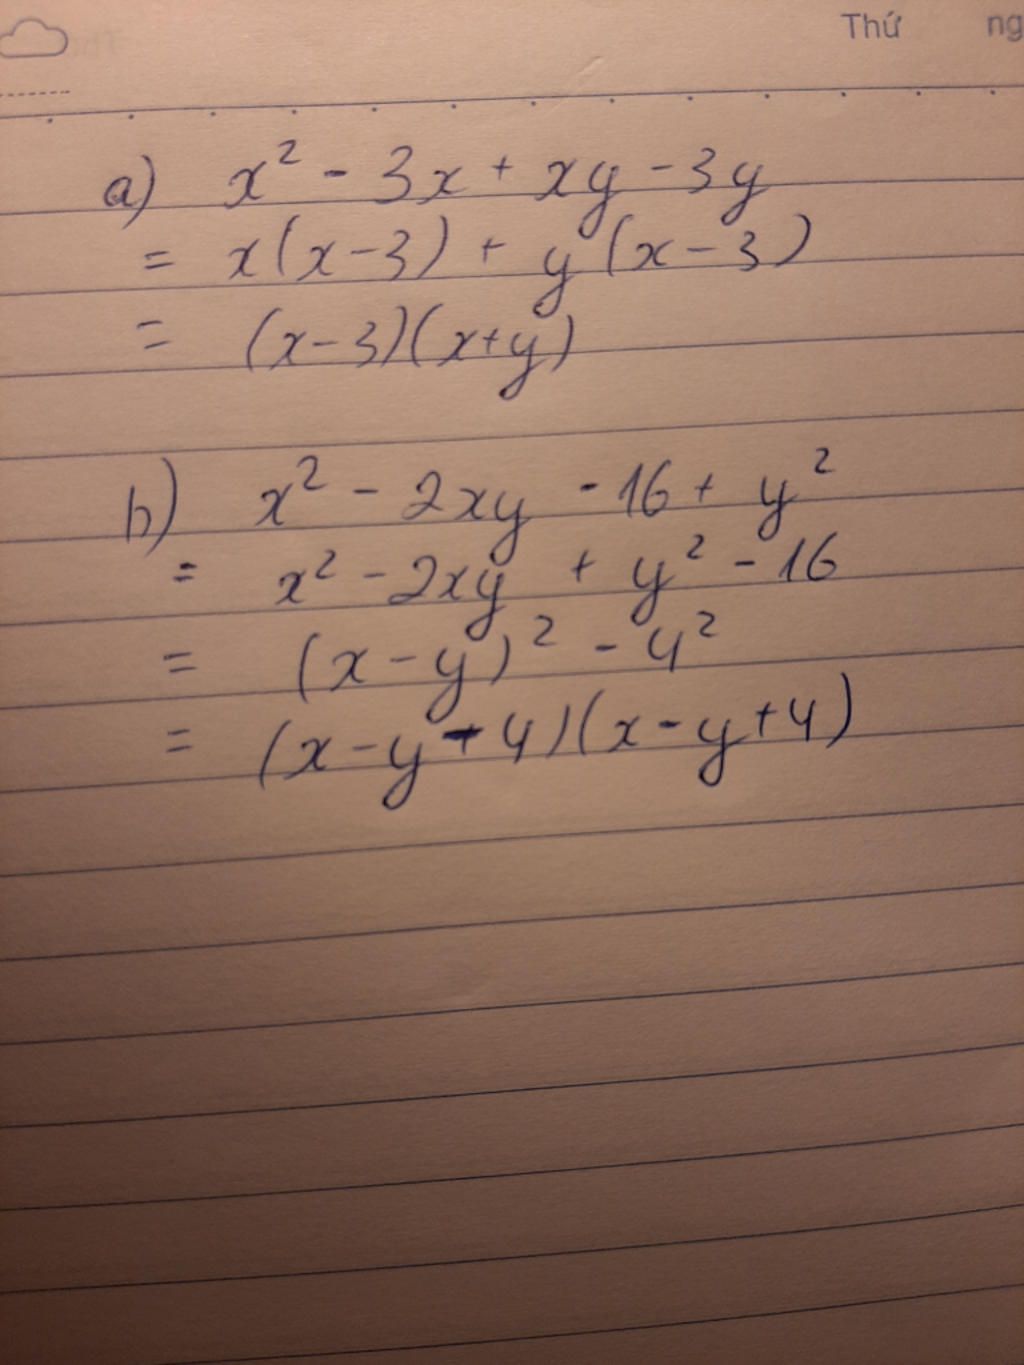 Thứ ng
a) x² - 3x + xy - 3y
= x(x-3) + y(x-3)
= (x-3)(x+y)
b) x² - 2xy - 16 + y²
= x² - 2xy + y² - 16
= (x-y)² - 4²
= (x-y-4)(x-y+4)